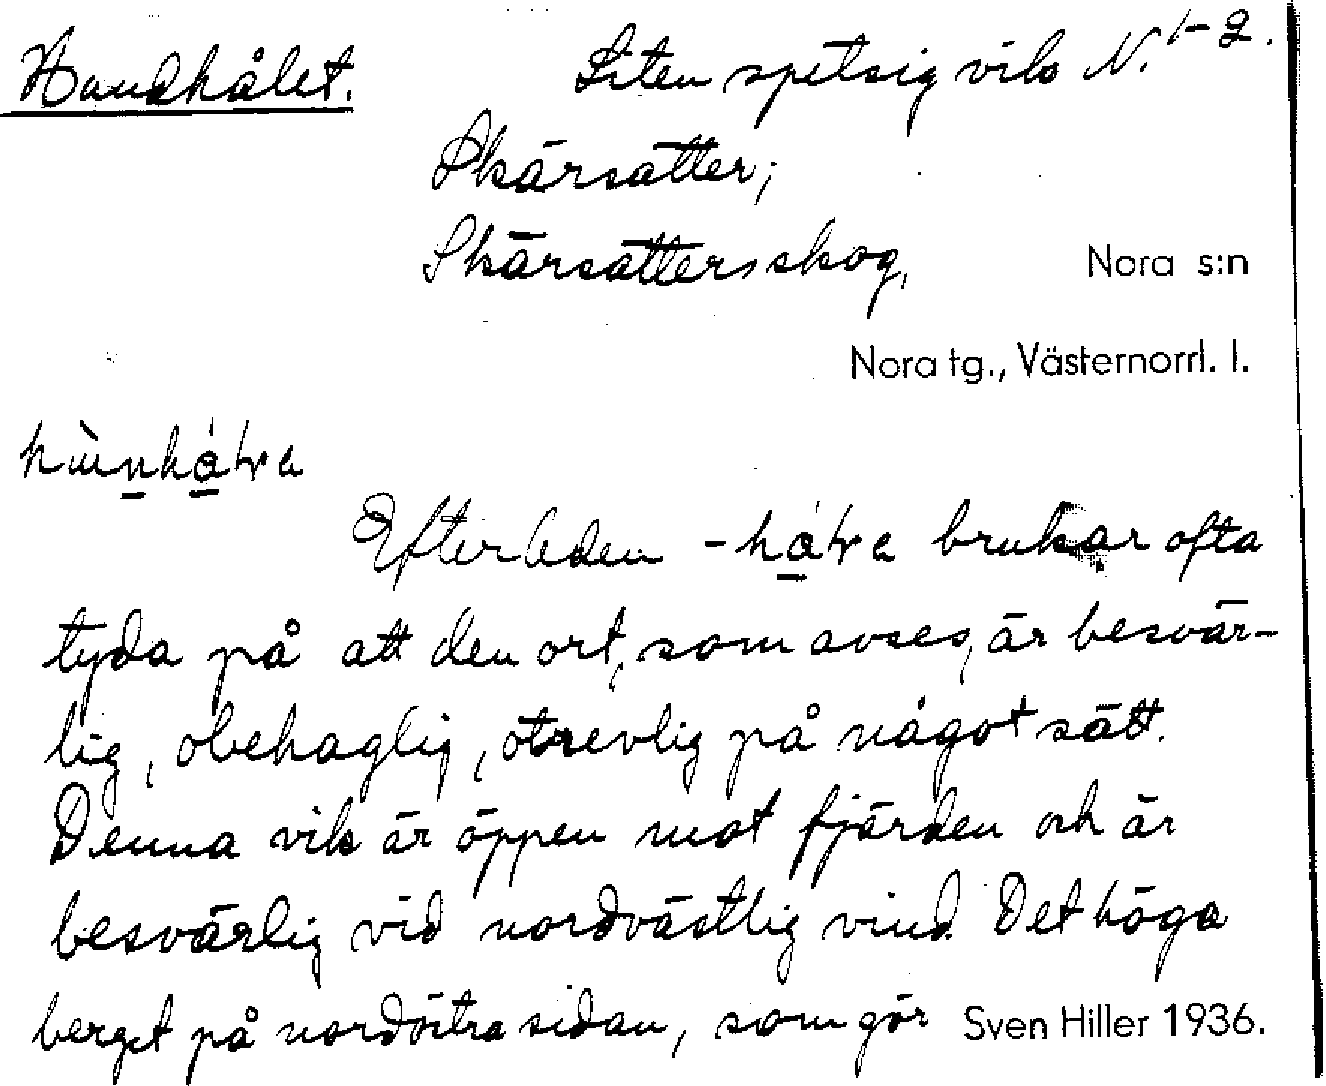 Hundhålet.
Liten spetsig vik N. 1-2.
Skärsätter;
Skärsättersskog,
Nora s:n
Nora tg., Västernorrl. l.
Efterleden brukar ofta
tyda på att den ort, som avses, är besvär-
lig, obehaglig, otrevlig på något sätt.
Denna vik är öppen mot fjärden och är
besvärlig vid nordvästlig vind. Det höga
berget på nordöstra sidan, som gör
Sven Hiller 1936.